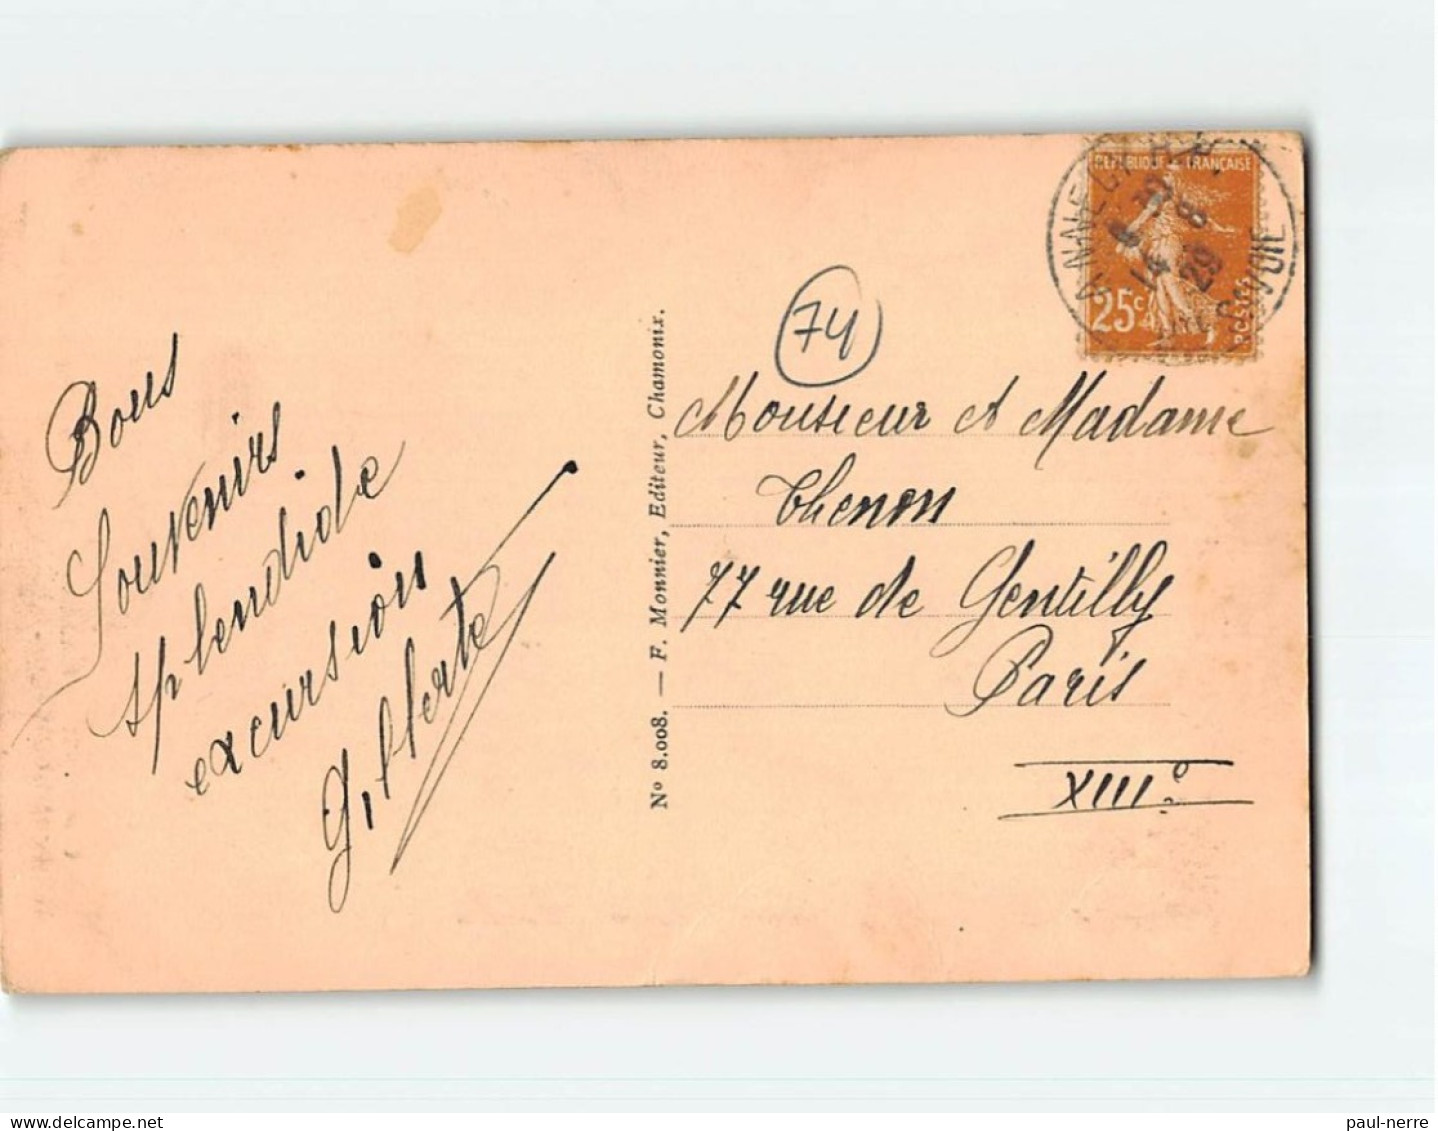 Bons
Souvenirs
splendide
excursion
Gilberte
N° 8.008. — F. Monnier, Editeur, Chamonix.
74
RÉPUBLIQUE FRANÇAISE
25c
POSTES
14
8
29
Monsieur et Madame
Thenon
77 rue de Gentilly
Paris
XIIIe
paul-nerre